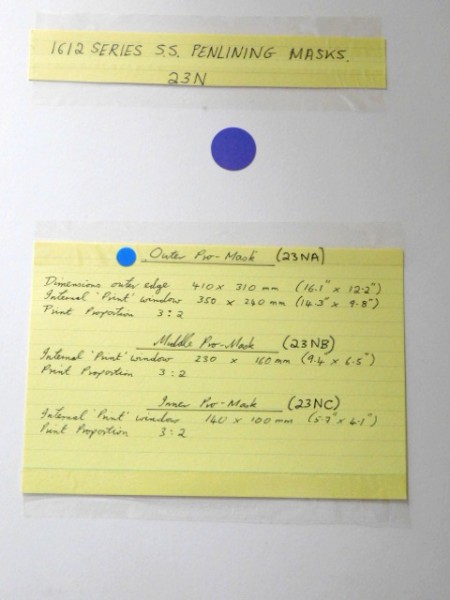 1612 SERIES S.S. PENLINING MASKS.
23N
Outer Pro-Mask (23NA)
Dimensions outer edge 410 x 310 mm (16.1" x 12.2")
Internal 'Print' window 350 x 240 mm (14.3" x 9.8")
Print Proportion 3:2
Middle Pro-Mask (23NB)
Internal 'Print' window 230 x 160 mm (9.4 x 6.5")
Print Proportion 3:2
Inner Pro-Mask (23NC)
Internal 'Print' window 140 x 100 mm (5.7" x 4.1")
Print Proportion 3:2